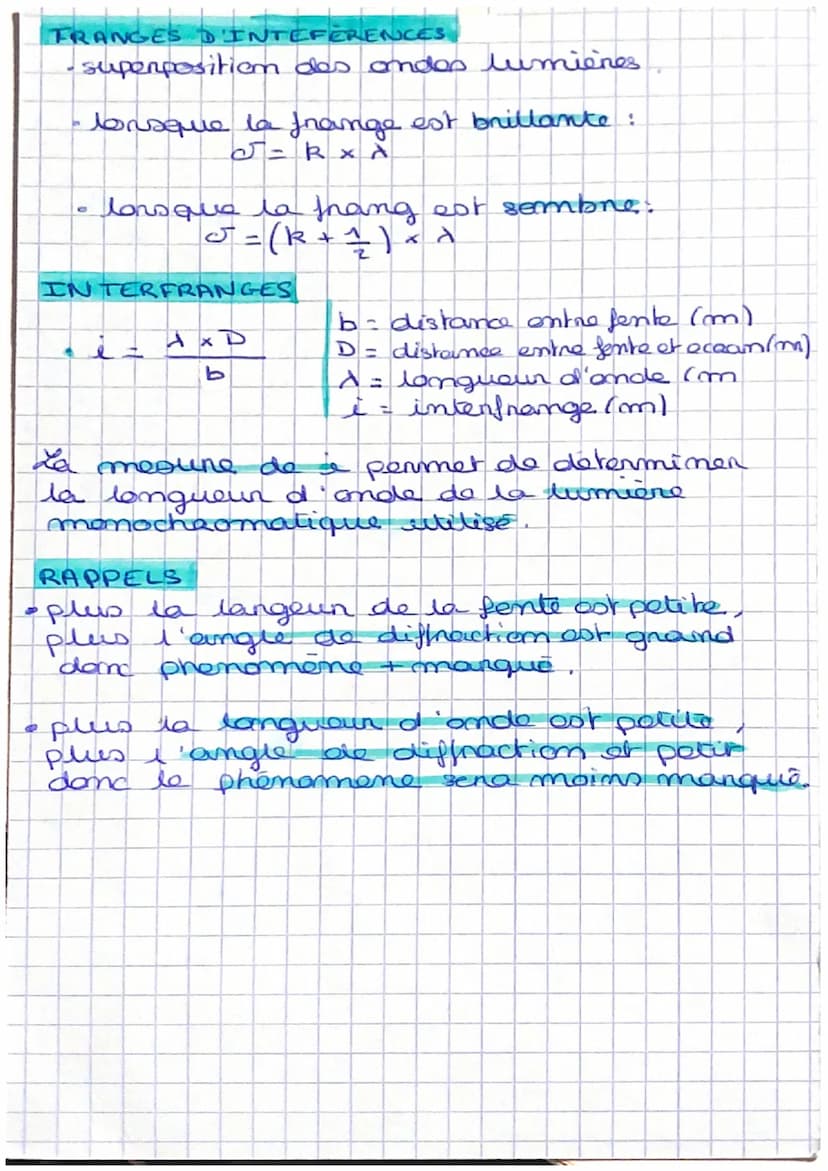 FRANGES D'INTEFÉRENCES
- superposition des ondes lumières.
• lorsque la frange est brillante :
δ = k × λ
• lorsque la frang est sembre :
δ = (k + 1/2) × λ
INTERFRANGES
• i = λ × D / b
b = distance entre fente (m)
D = distance entre fente et écean (m)
λ = longueur d'onde (m
i = interfrange (m)
La mesure de i permet de déterminer
la longueur d'onde de la lumière
monochromatique utilisé.
RAPPELS
• plus la largeur de la fente est petite,
plus l'angle de diffraction est grand
donc phenomène + marqué.
• plus la longueur d'onde est petite,
plus l'angle de diffraction et petit
donc le phénomene sera moins marqué.